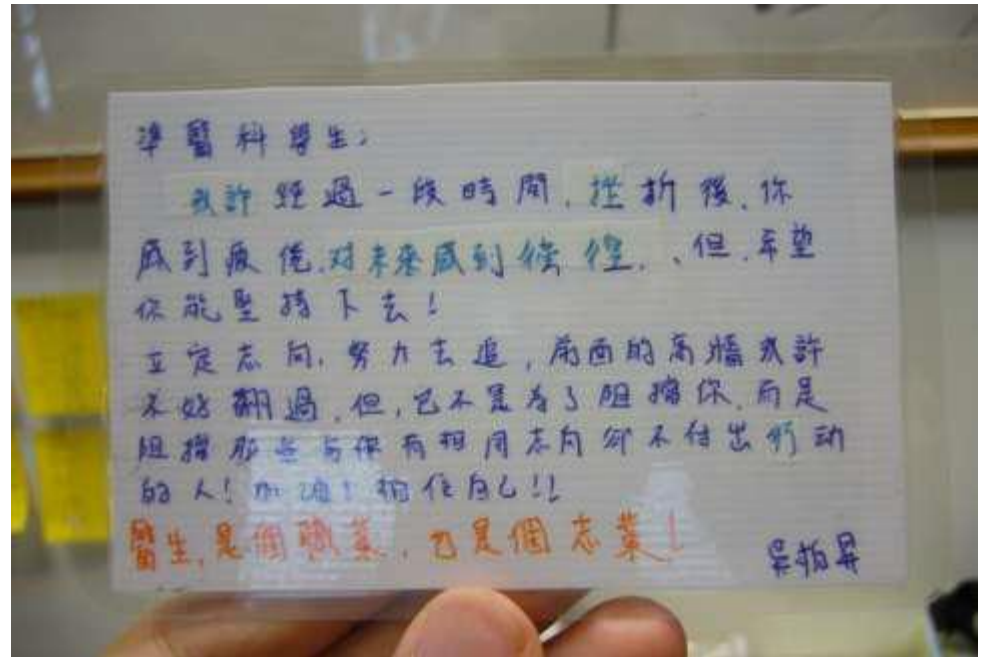 準醫科學生：
或許經過一段時間、挫折後、你
感到疲倦、对未來感到徬徨、、但、希望
你能堅持下去！
立定志向，努力去追，前面的高牆或許
不好翻過，但，它不是為了阻擋你，而是
阻擋那些与你有相同志向卻不付出行动
的人！加油！相信自己！！
醫生，是個職業，也是個志業！
吳柏昇